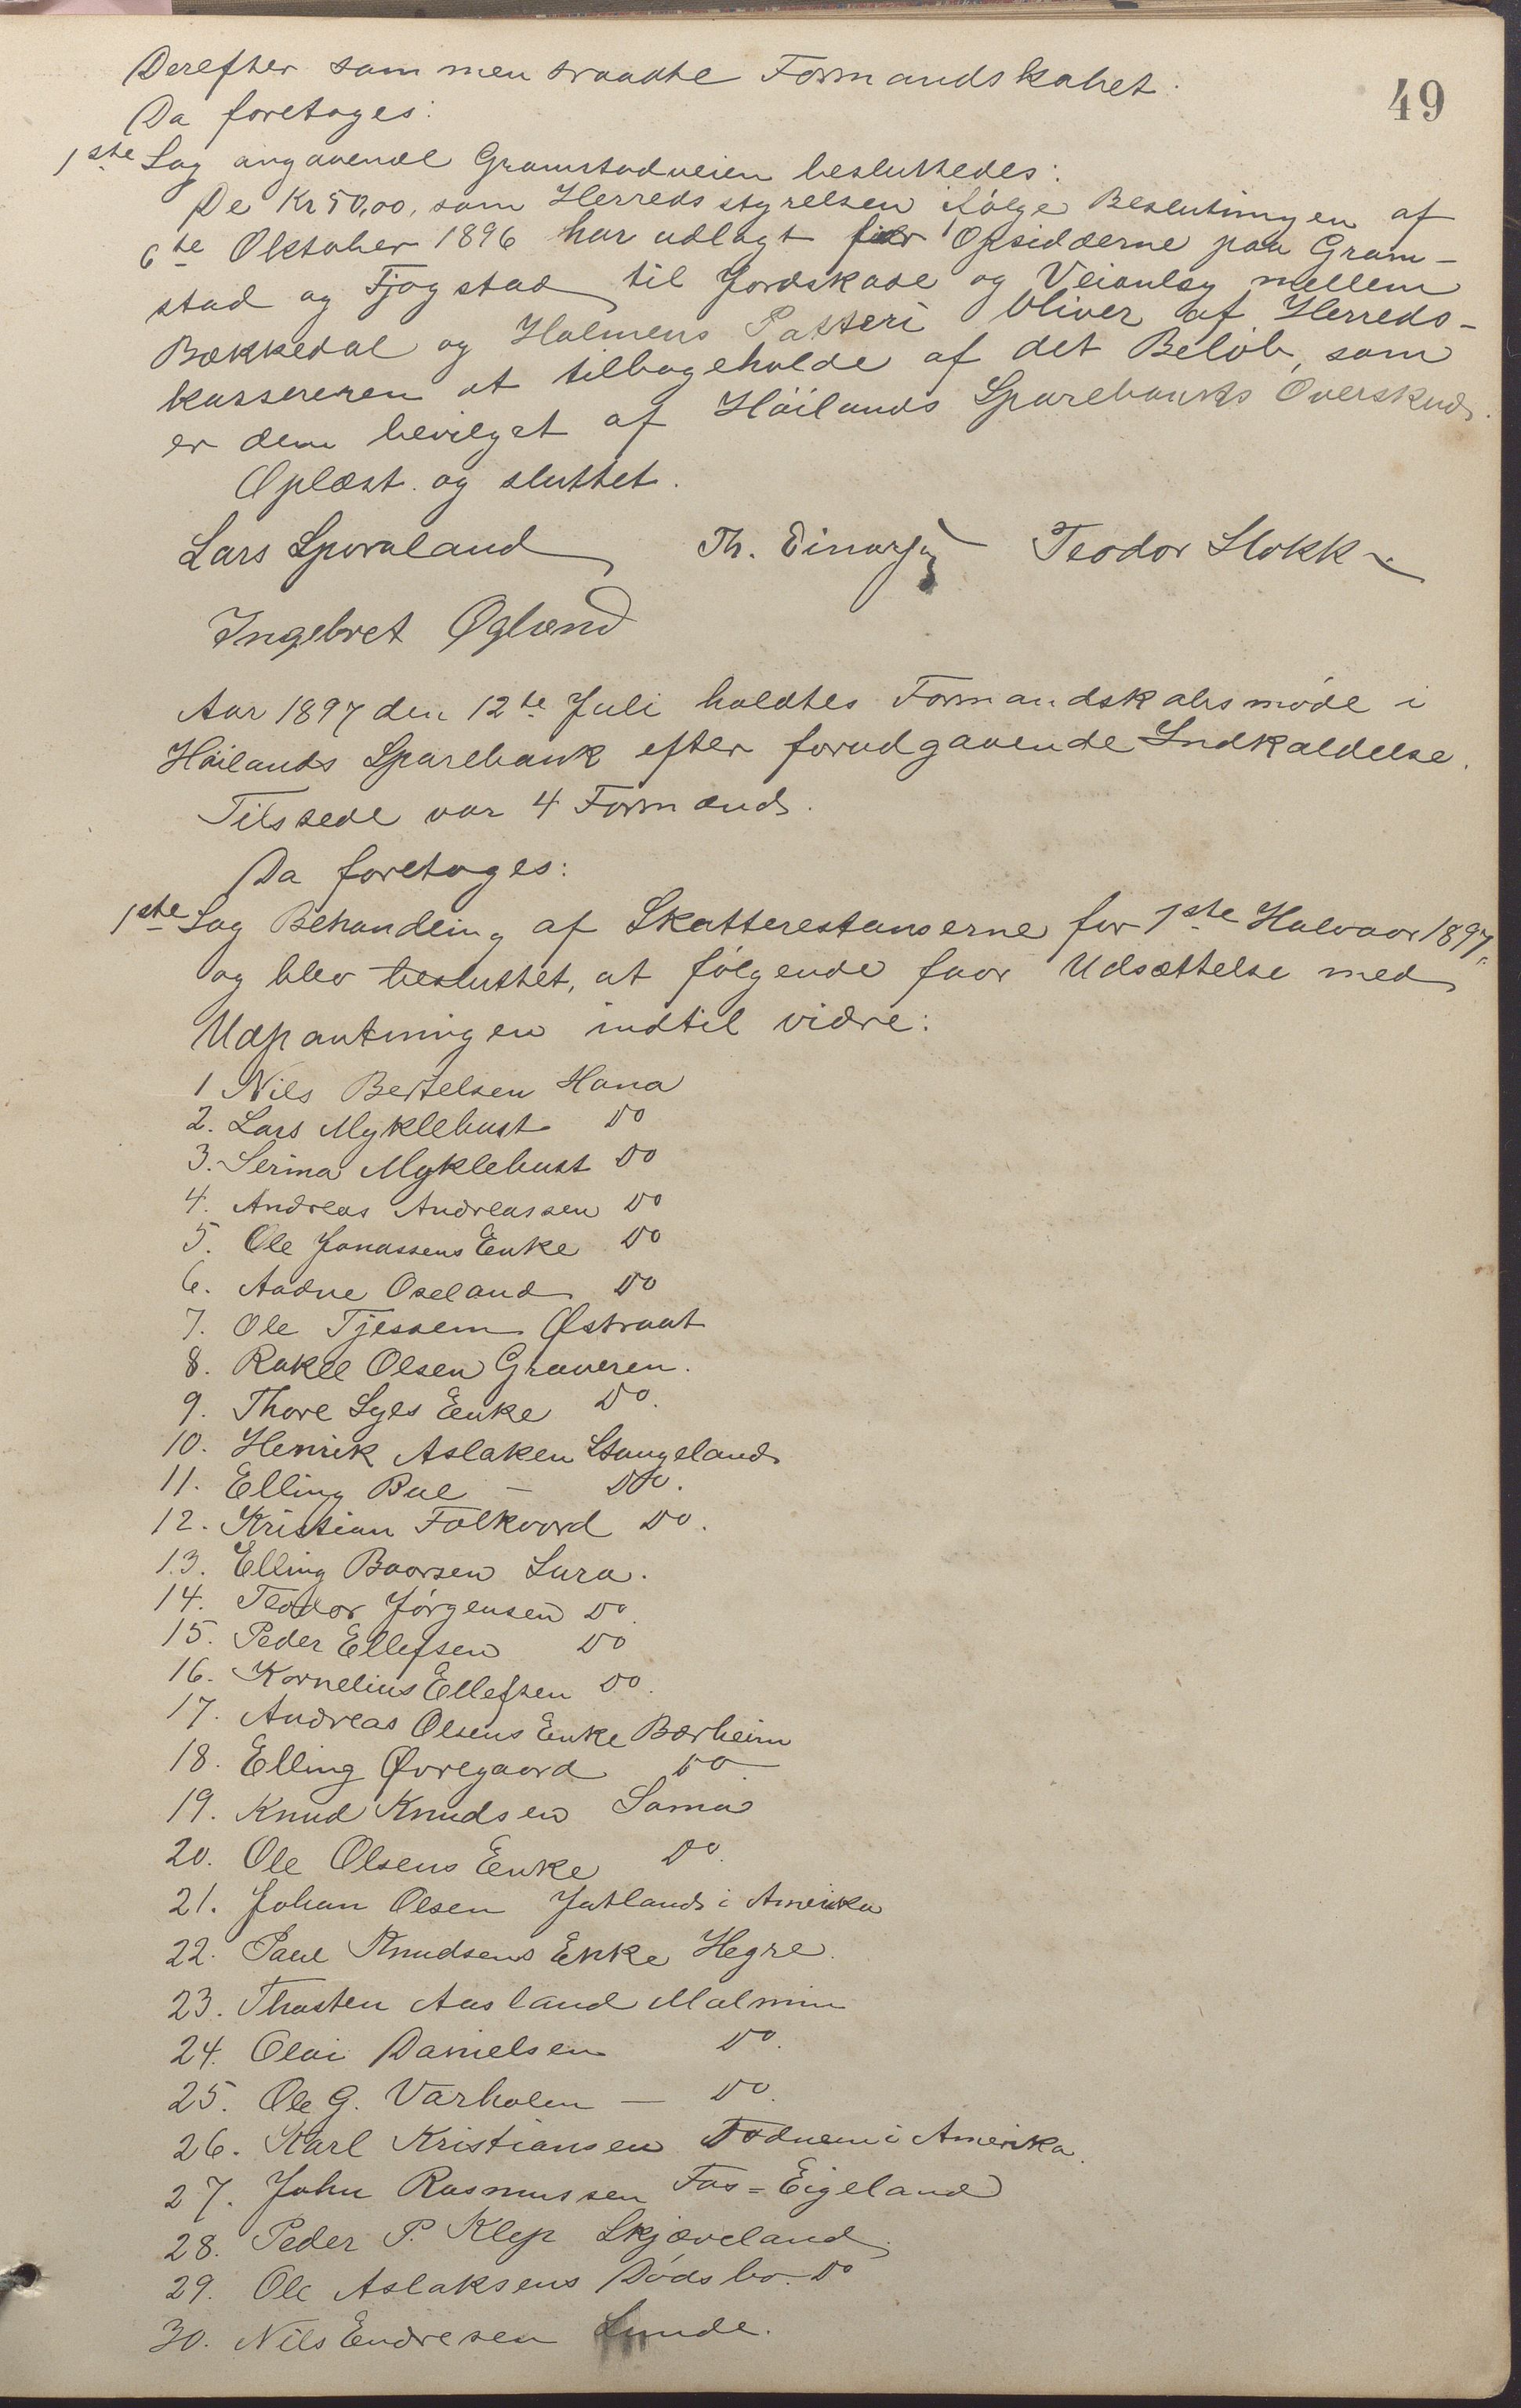 49
Derefter sammentraadte Formandskabet:
Da foretoges:
1ste Sag angaaende Gramstadveien besluttedes:
De Kr 50,00, som Herredsstyrelsen ifølge Beslutningen af
6te Oktober 1896 har udlagt for Opsidderne paa Gram-
stad og Fjogstad til Jordskade og Veianlæg mellem
Bækkedal og Holmens Patteri bliver af Herreds-
kassereren at tilbageholde af det Beløb, som
er dem bevilget af Höilands Sparebanks Overskud.
Oplæst og sluttet.
Lars Sporaland Th. Einarsen Teodor Stokka
Ingebret Øglænd
Aar 1897 den 12te Juli holdtes Formandskabsmøde i
Höilands Sparebank efter forudgaaende Indkaldelse.
Tilstede var 4 Formænd.
Da foretoges:
1ste Sag Behandling af Skatterestanserne for 1ste Halvaar 1897,
og blev besluttet, at følgende faar Udsættelse med
Udpantningen indtil vidre:
1 Nils Bertelsen Hana
2. Lars Myklebust Do
3. Serina Myklebust Do
4. Andreas Andreassen Do
5. Ole Jonassens Enke Do
6. Aadne Oseland Do
7. Ole Tjessem Østraat
8. Rakel Olsen Graveren.
9. Thore Lyes Enke Do.
10. Henrik Aslaken Stangeland
11. Elling Bue – Do.
12. Kristian Folkvord Do.
13. Elling Baarsen Lura.
14. Teodor Jørgensen Do.
15. Peder Ellefsen Do
16. Kornelius Ellefsen Do.
17. Andreas Olsens Enke Bærheim
18. Elling Øvregaard Do.
19. Knud Knudsen Soma
20. Ole Olsens Enke Do.
21. Johan Olsen Jatland i Amerika
22. Paul Knudsens Enke Hegre.
23. Thosten Aasland Malmin
24. Olai Danielsen Do.
25. Ole G. Varholen – Do.
26. Karl Kristiansen Todnem i Amerika.
27. John Rasmussen Fos=Eigeland
28. Peder P. Klep Skjæveland
29. Ole Aslaksens Dødsbo. Do
30. Nils Endresen Lunde.